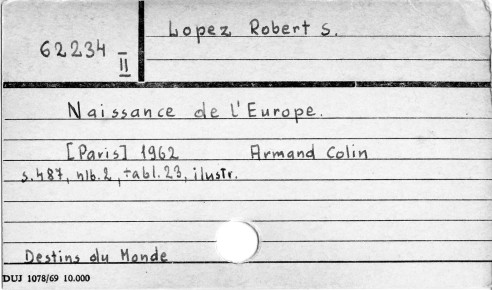 Lopez Robert S.
62234
II
Naissance de l'Europe.
[Paris] 1962 Armand Colin
s.487, nlb.2, tabl.23, ilustr.
Destins du Monde
DUJ 1078/69 10.000